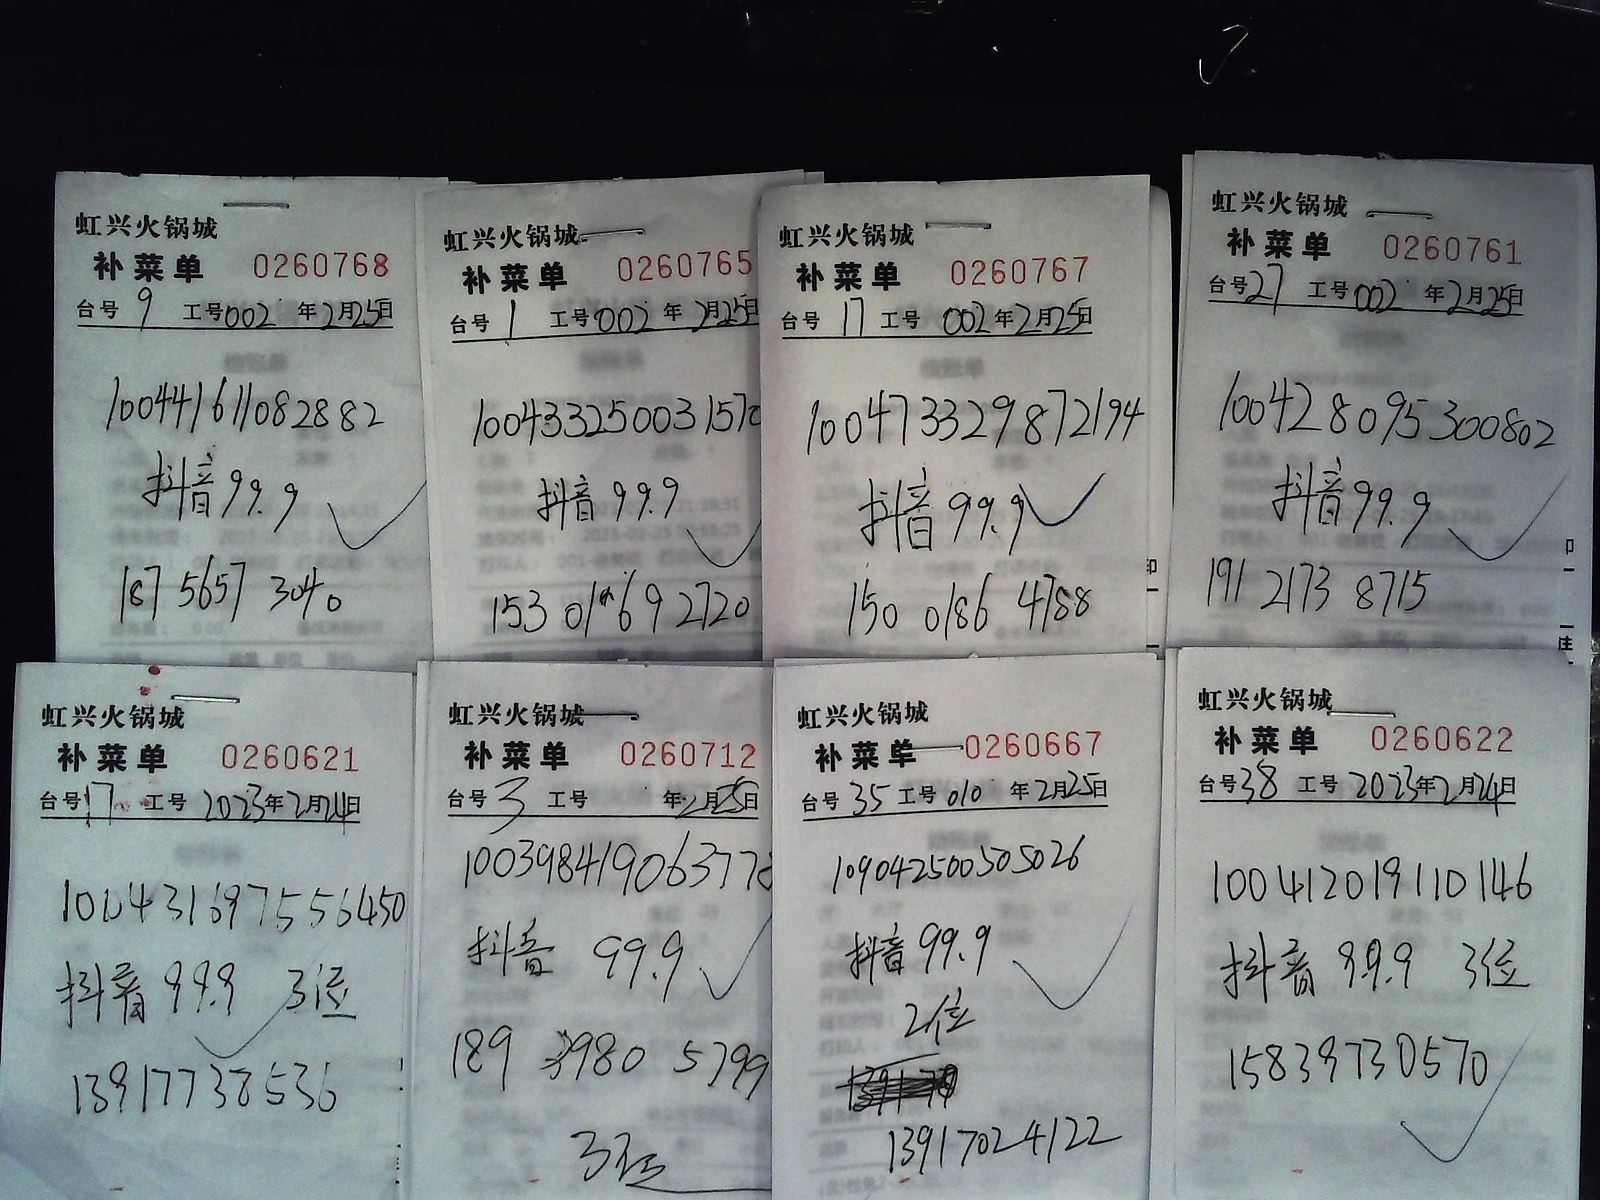 虹兴火锅城
补菜单 0260768
台号 9 工号 002 年 2月25日
100441611082882
抖音 99.9
187 5657 3040
虹兴火锅城
补菜单 0260765
台号 1 工号 002 年 2月25日
100433250031570
抖音 99.9
153 0169 2720
虹兴火锅城
补菜单 0260767
台号 17 工号 002 年 2月25日
1004733329872194
抖音 99.9
150 0186 4788
虹兴火锅城
补菜单 0260761
台号 27 工号 002 年 2月25日
100428095300802
抖音 99.9
191 2173 8715
虹兴火锅城
补菜单 0260621
台号 17 工号 2023年2月24日
1004316975556450
抖音 99.9 3位
13917738536
虹兴火锅城
补菜单 0260712
台号 3 工号 年 2月25日
抖音 99.9
189 3980 5799
3位
虹兴火锅城
补菜单 0260667
台号 35 工号 010 年 2月25日
109042500505026
抖音 99.9
2位
13917024122
虹兴火锅城
补菜单 0260622
台号 38 工号 2023年2月24日
100412019110146
抖音 99.9 3位
15839730570